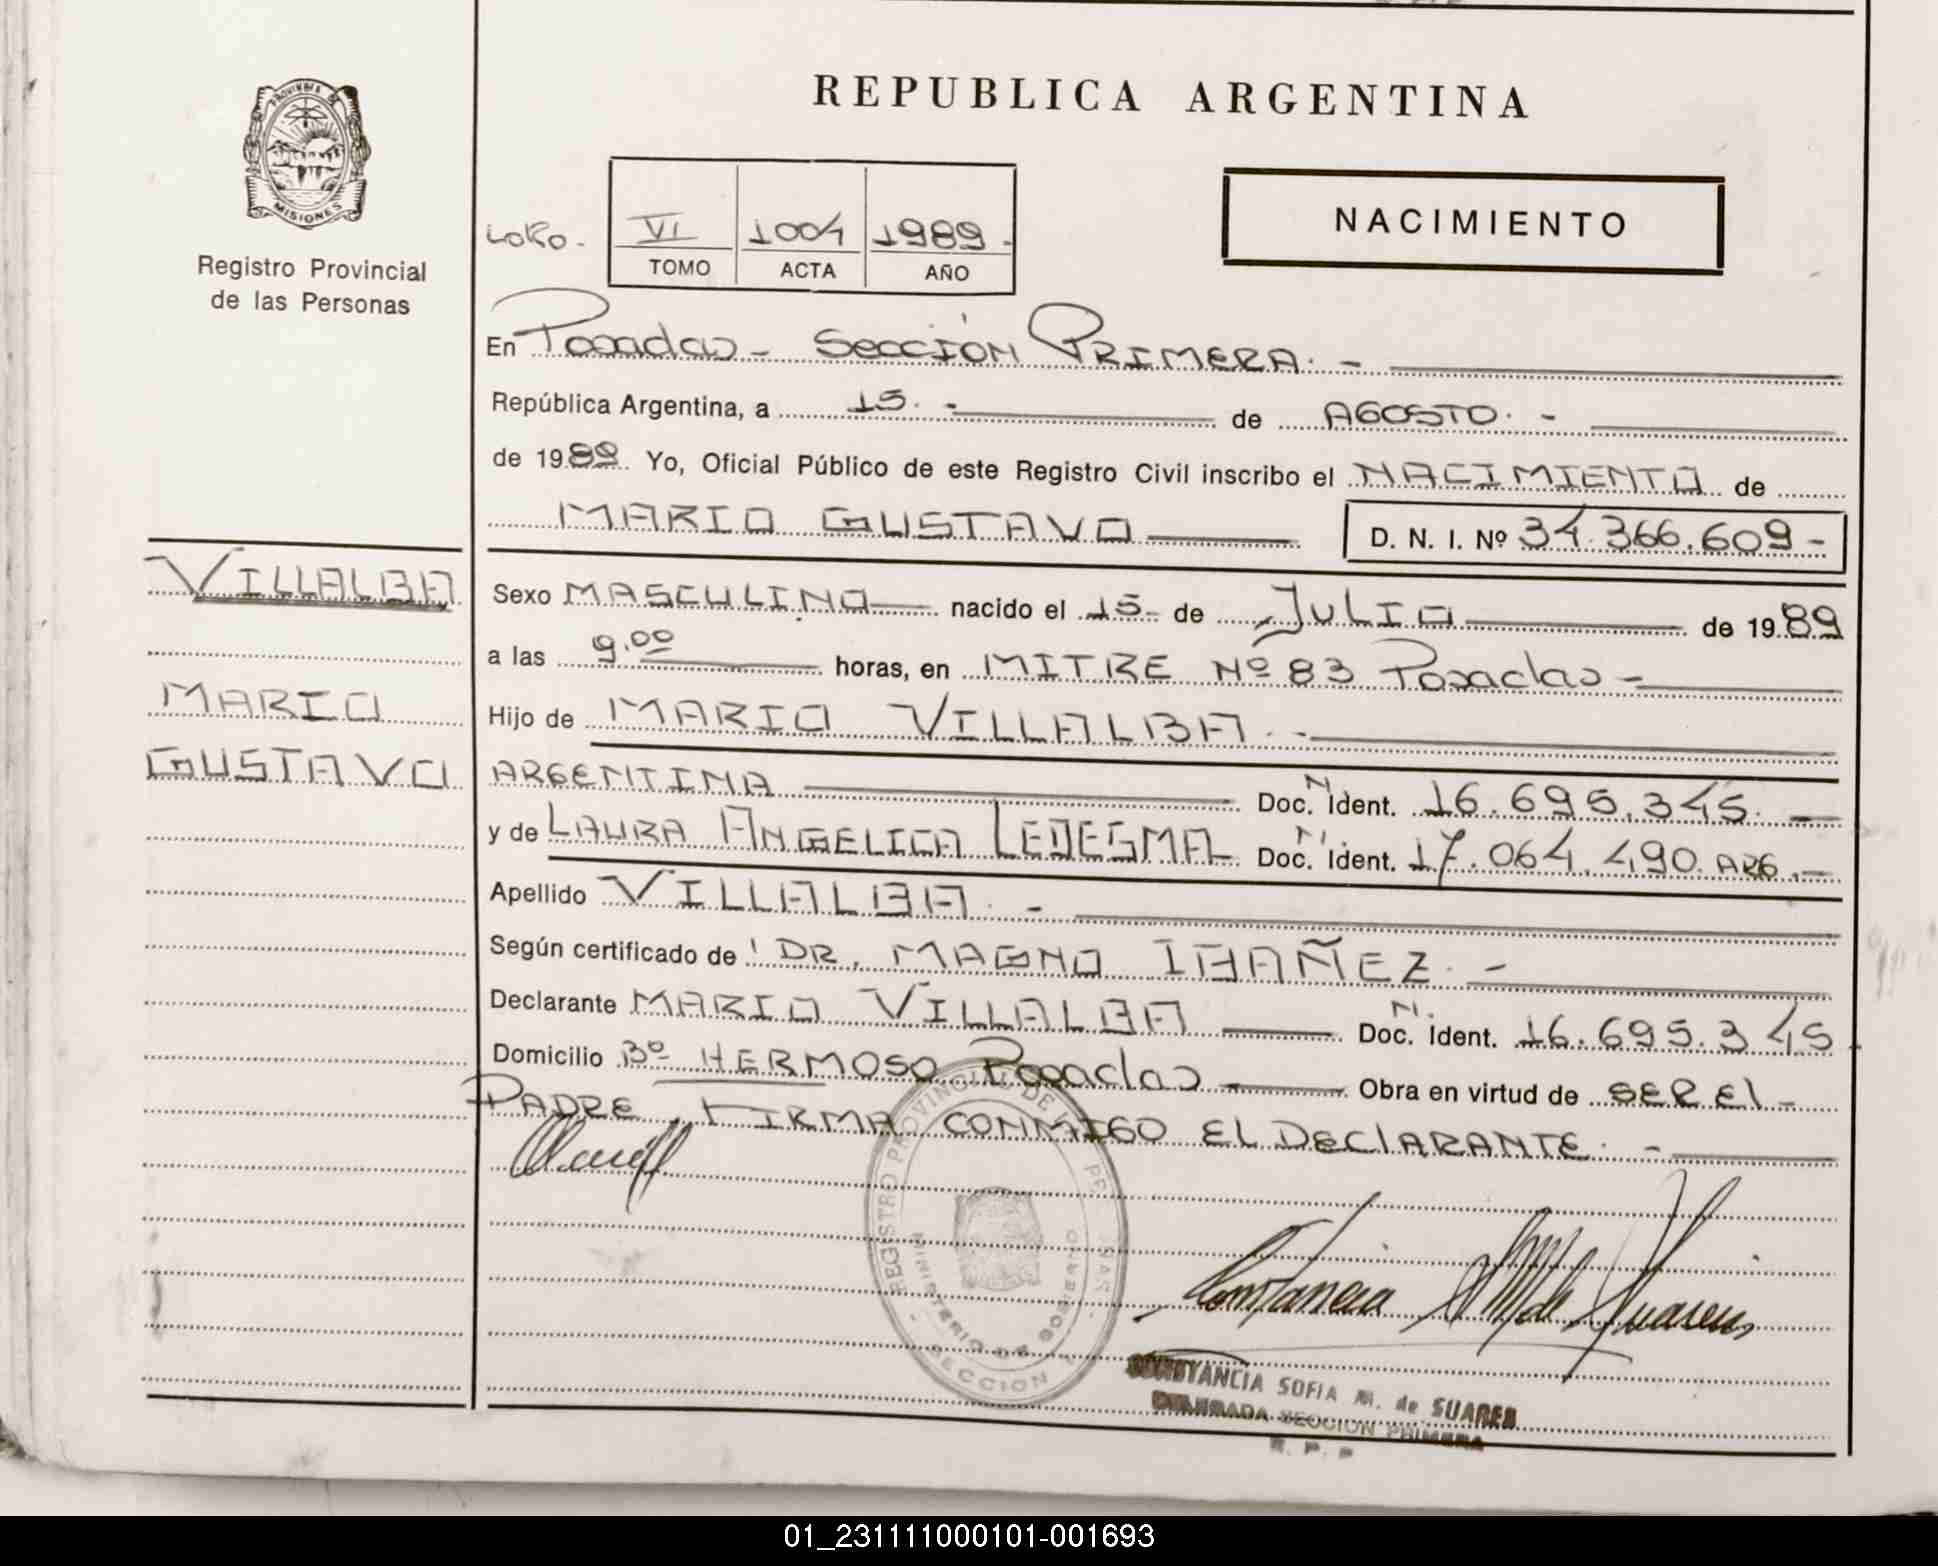 REPUBLICA ARGENTINA
PROVINCIA DE
MISIONES
Registro Provincial
de las Personas
VI 1004 1989.-
TOMO ACTA AÑO
NACIMIENTO
En Posadas - Sección PRIMERA. -
República Argentina, a 15. - de AGOSTO. -
de 1989. Yo, Oficial Público de este Registro Civil inscribo el NACIMIENTO de
MARIO GUSTAVO D. N. I. Nº 34.366.609-
VILLALBA
MARIO
GUSTAVO
Sexo MASCULINO nacido el 15- de JULIO de 1989
a las 9.00 horas, en MITRE Nº 83 Posadas -
Hijo de MARIO VILLALBA. -
ARGENTINA Doc. N. Ident. 16.695.345. -
y de LAURA ANGELICA LEDESMA Doc. N. Ident. 17.064.490. ARG.-
Apellido VILLALBA. -
Según certificado de DR. MAGNO IBAÑEZ. -
Declarante MARIO VILLALBA Doc. N. Ident. 16.695.345.
Domicilio Bº HERMOSO Posadas Obra en virtud de SER El -
PADRE, FIRMA CONMIGO EL DECLARANTE. -
REGISTRO PROVINCIAL DE LAS PERSONAS
MINISTERIO DE GOBIERNO
SECCION
Constancia de Suares
CONSTANCIA SOFIA M. de SUARES
ENCARGADA SECCION PRIMERA
R. P. P
01_231111000101-001693